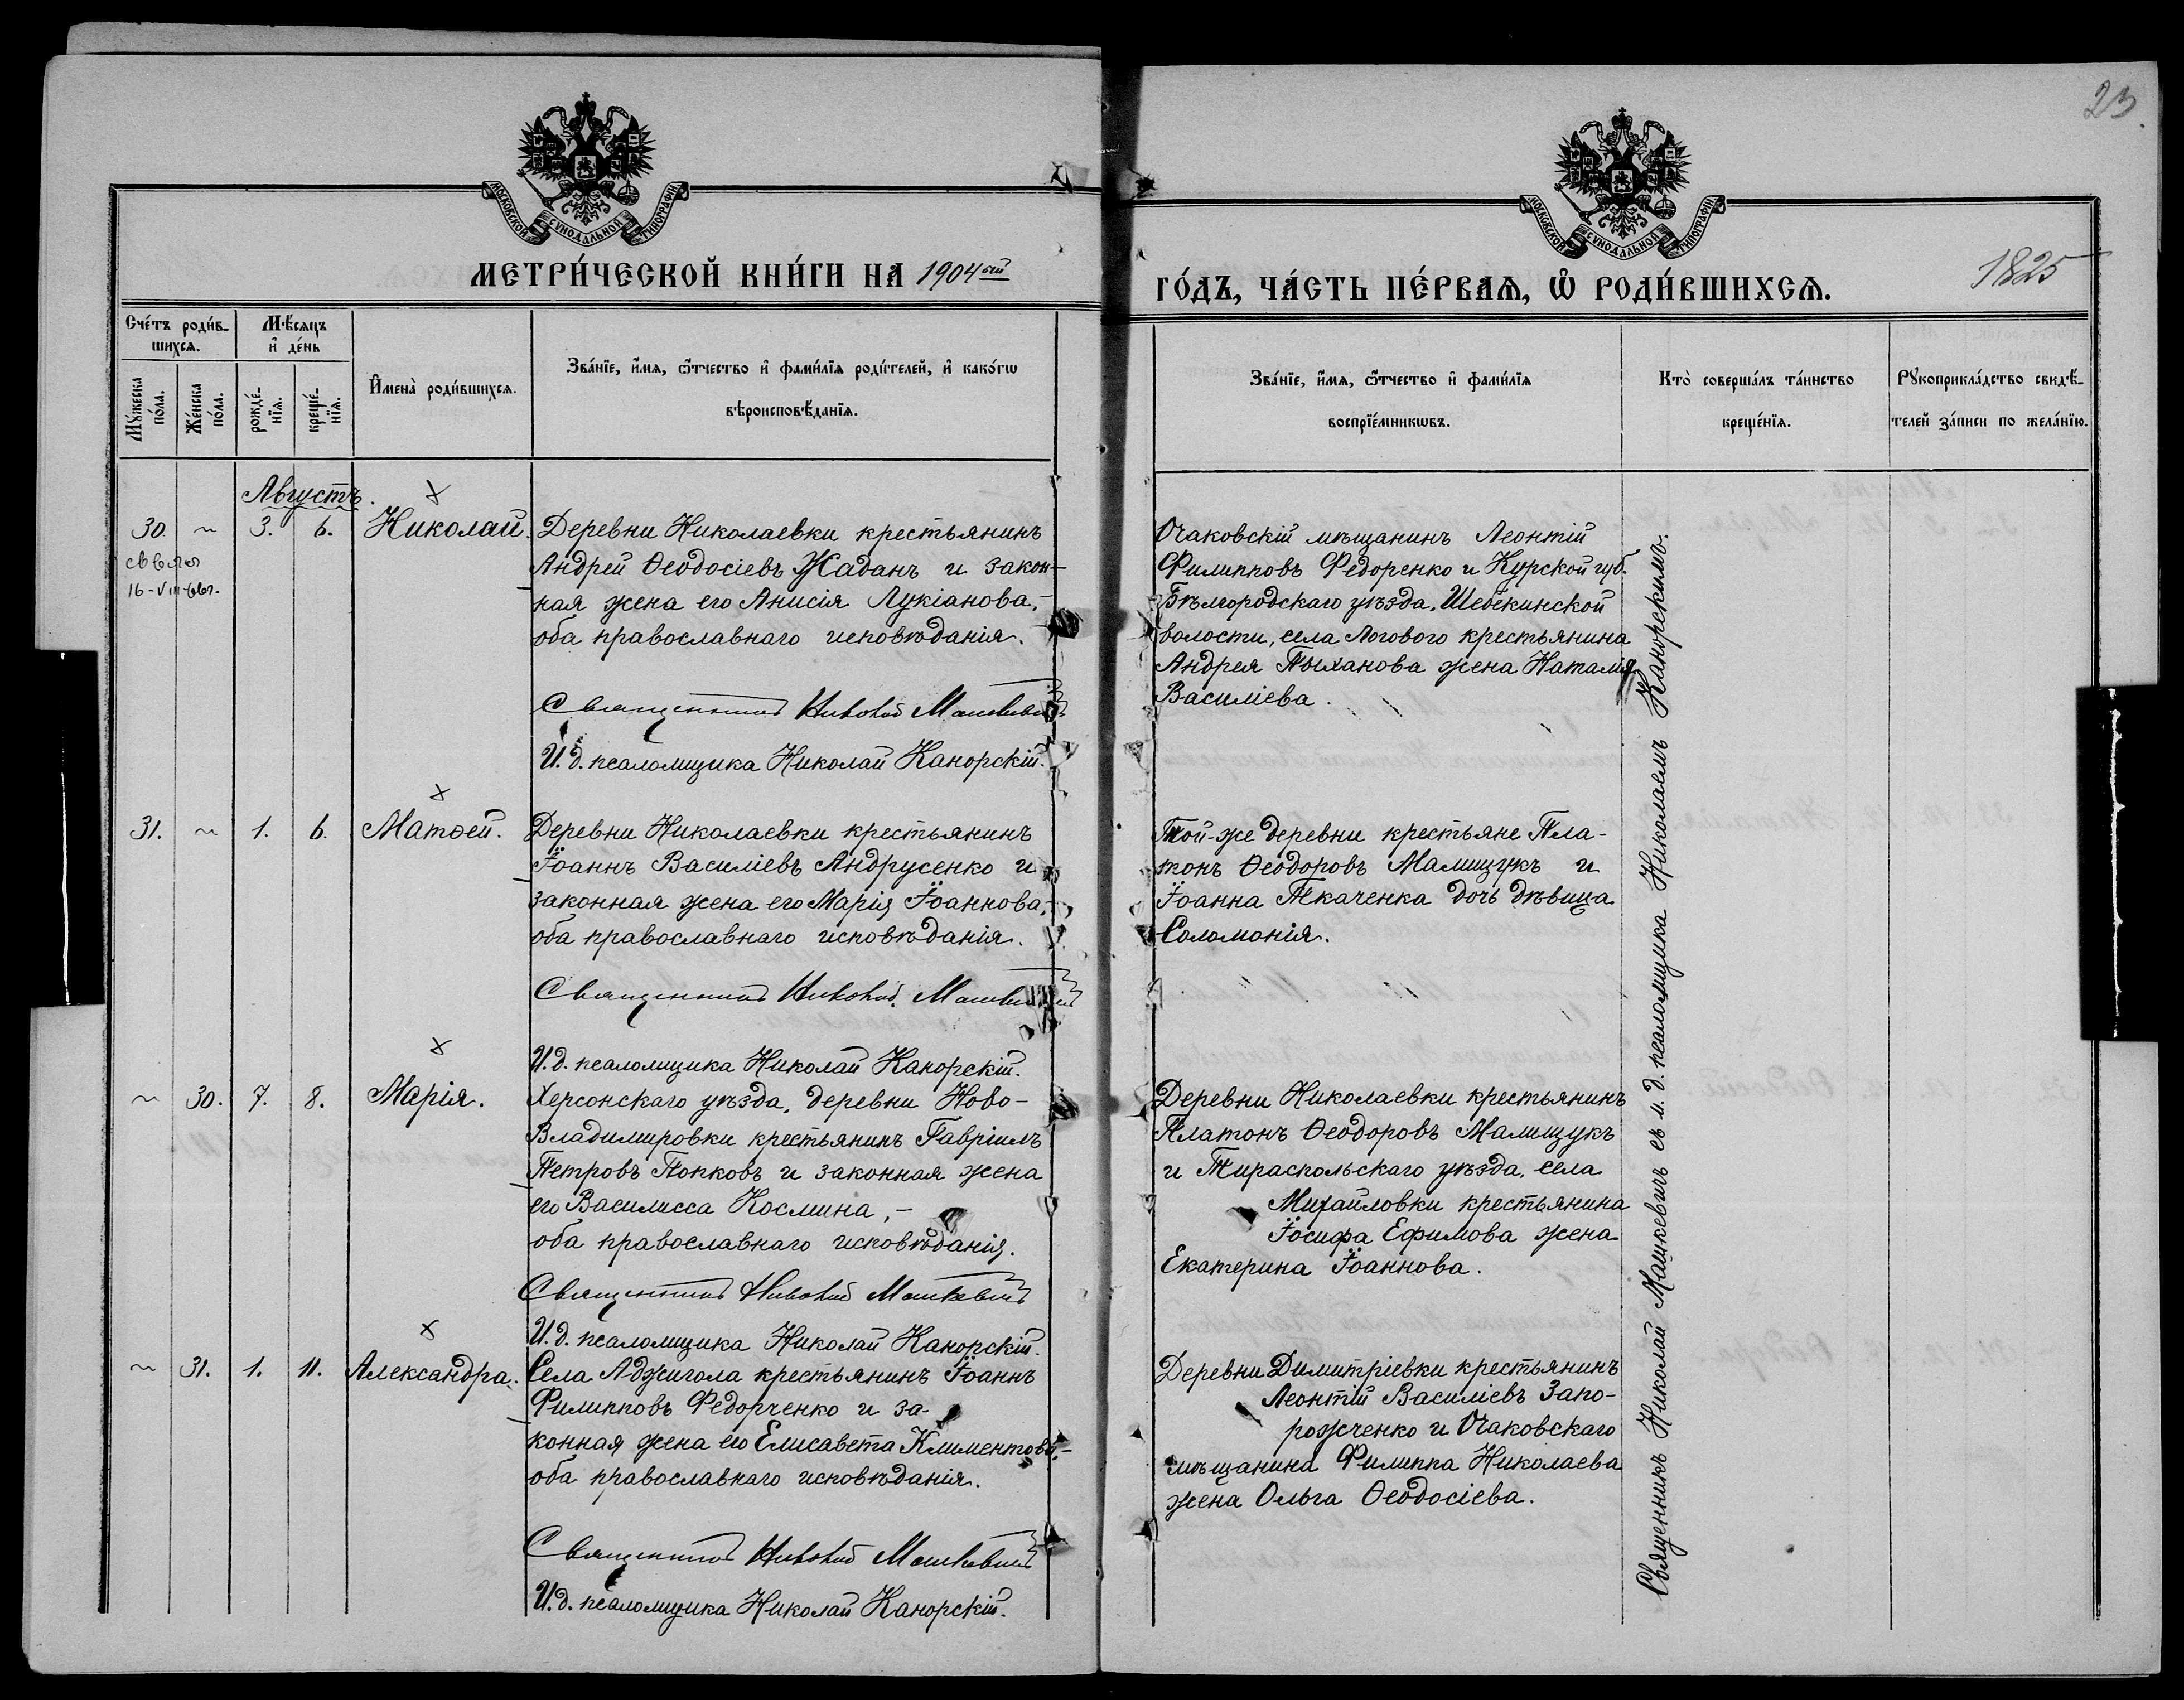 23.
МОСКОВСКОЙ СУНОДАЛЬНОЙ ТИПОГРАФІИ
МОСКОВСКОЙ СУНОДАЛЬНОЙ ТИПОГРАФІИ
МЕТРИ́ЧЕСКОЙ КНИ́ГИ НА 1904ый
ГО́ДЪ, ЧА́СТЬ ПЕ́РВАѦ, Ѡ҆ РОДИ́ВШИХСѦ.
1825
Сче́тъ роди́в-
шихсѧ.
Му́жеска по́ла.
Же́нска по́ла.
Мѣ́сѧцъ
и҆ де́нь
рожде́-
нїѧ.
креще́-
нїѧ.
И҆мена̀ роди́вшихсѧ.
Зва́нїе, и҆́мѧ, ѻ҆́тчество и҆ фами́лїѧ роди́телей, и҆ како́гѡ
вѣроисповѣ́данїѧ.
Зва́нїе, и҆́мѧ, ѻ҆́тчество и҆ фами́лїѧ
воспрїе́мникѡвъ.
Кто̀ соверша́лъ та́инство
креще́нїѧ.
Рꙋкоприкла́дство свидѣ́-
телей за́писи по жела́нїю.
Августъ.
30. ~ 3. 6. Николай.
16-VIII-
Деревни Николаевки крестьянинъ
Андрей Ѳеодосіевъ Жаданъ и закон-
ная жена его Анисія Лукіанова,-
оба православнаго исповѣданія.
Священникъ Николай Машкевичъ
И. д. псаломщика Николай Канорскій.
Очаковскій мѣщанинъ Леонтій
Филипповъ Федоренко и Курской губ.
Бѣлгородскаго уѣзда, Шебекинской
волости, села Логового крестьянина
Андрея Тыханова жена Наталія
Василіева.
31. ~ 1. 6. Матѳей.
Деревни Николаевки крестьянинъ
Іоаннъ Василіевъ Андрусенко и
законная жена его Марія Іоаннова,-
оба православнаго исповѣданія.
Священникъ Николай Машкевичъ
И. д. псаломщика Николай Канорскій.
Той-же деревни крестьяне Пла-
тонъ Ѳеодоровъ Малищукъ и
Іоанна Ткаченка дочь дѣвица
Соломонія.
~ 30. 7. 8. Марія.
Херсонскаго уѣзда, деревни Ново-
Владимировки крестьянинъ Гавріилъ
Петровъ Попковъ и законная жена
его Василисса Космина,-
оба православнаго исповѣданія.
Священникъ Николай Машкевичъ
И. д. псаломщика Николай Канорскій.
Деревни Николаевки крестьянинъ
Платонъ Ѳеодоровъ Малищукъ
и Тираспольскаго уѣзда, села
Михайловки крестьянина
Іосифа Ефимова жена
Екатерина Іоаннова.
~ 31. 1. 11. Александра.
Села Аджигола крестьянинъ Іоаннъ
Филипповъ Федорченко и за-
конная жена его Елисавета Климентова,-
оба православнаго исповѣданія.
Священникъ Николай Машкевичъ
И. д. псаломщика Николай Канорскій.
Деревни Димитріевки крестьянинъ
Леонтій Василіевъ Запо-
рожченко и Очаковскаго
мѣщанина Филиппа Николаева
жена Ольга Ѳеодосіева.
Священникъ Николай Машкевичъ съ и. д. псаломщика Николаемъ Канорскимъ.